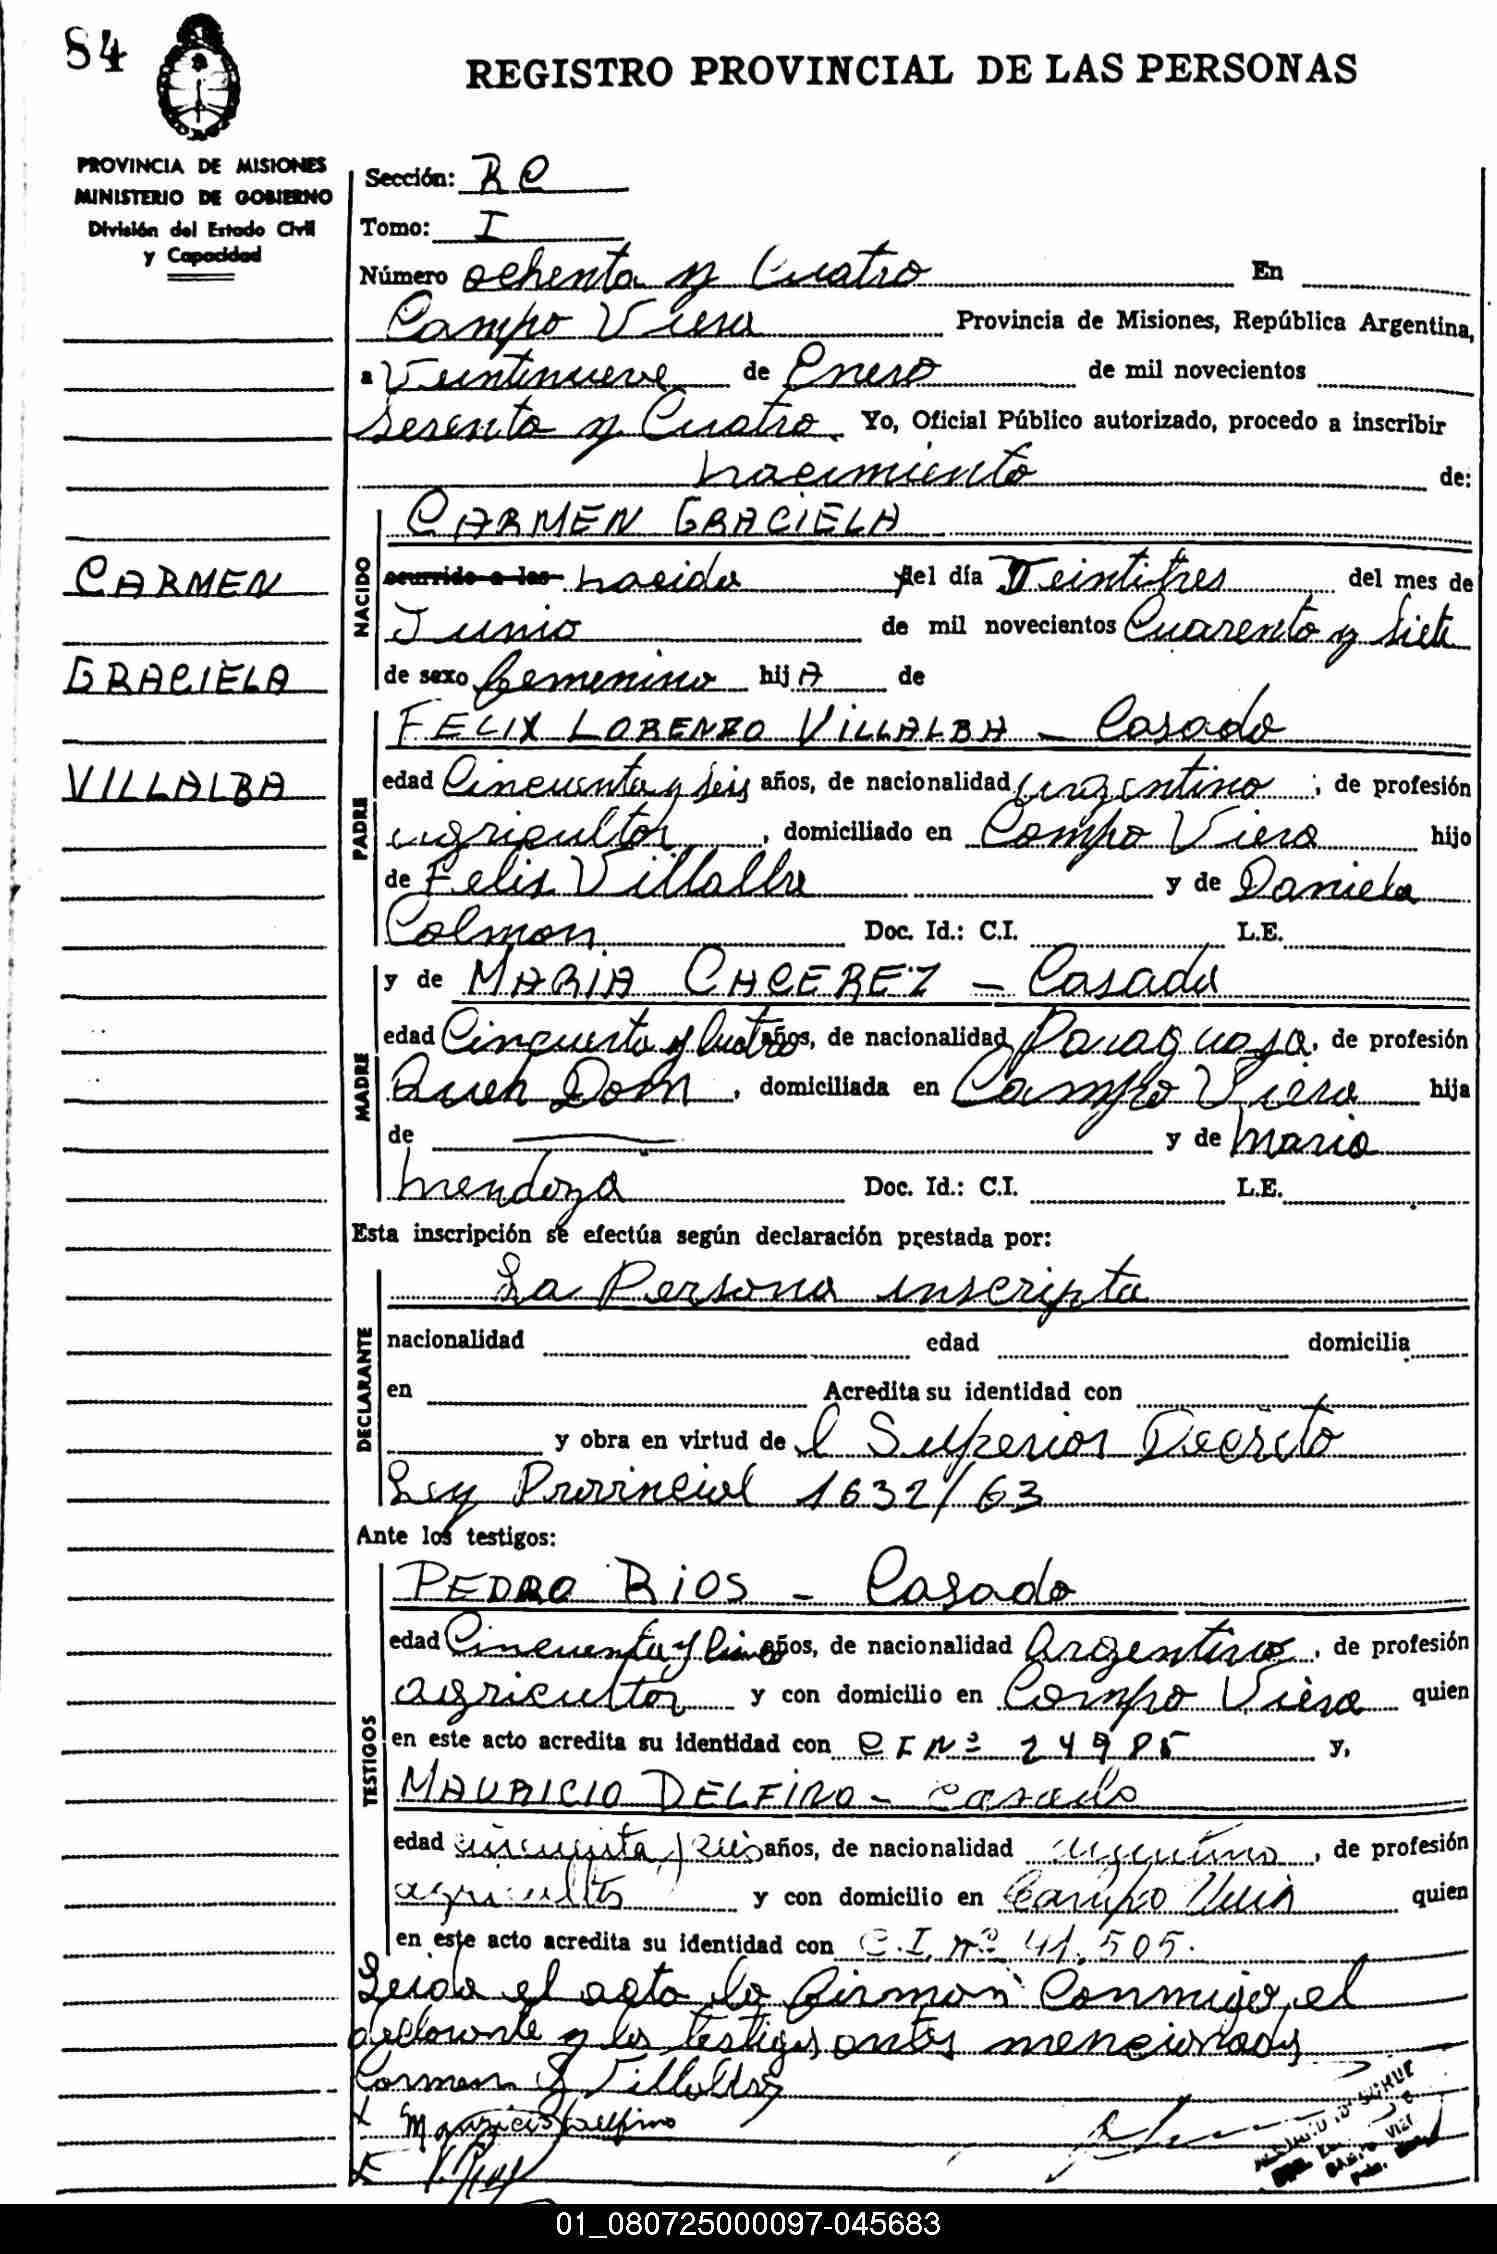 84
REGISTRO PROVINCIAL DE LAS PERSONAS
PROVINCIA DE MISIONES
MINISTERIO DE GOBIERNO
División del Estado Civil
y Capacidad
Sección: R C
Tomo: I
Número ochenta y Cuatro En
Campo Viera Provincia de Misiones, República Argentina,
a Veintinueve de Enero de mil novecientos
Sesenta y Cuatro Yo, Oficial Público autorizado, procedo a inscribir
nacimiento de:
CARMEN GRACIELA
CARMEN
GRACIELA
VILLALBA
NACIDO
ocurrido a las nacida el día Veintitres del mes de
Junio de mil novecientos Cuarenta y Siete
de sexo femenino hij A de
PADRE
FELIX LORENZO VILLALBA - Casado
edad Cincuenta y seis años, de nacionalidad argentino ; de profesión
agricultor, domiciliado en Campo Viera hijo
de Felix Villalba y de Daniela
Colman Doc. Id.: C.I. L.E.
MADRE
y de MARIA CACEREZ - Casada
edad Cincuenta y Cuatro años, de nacionalidad Paraguaya, de profesión
Queh Dom, domiciliada en Campo Viera hija
de — y de Maria
Mendoza Doc. Id.: C.I. L.E.
Esta inscripción se efectúa según declaración prestada por:
DECLARANTE
La Persona inscripta
nacionalidad edad domicilia
en Acredita su identidad con
y obra en virtud de l Superior Decreto
Ley Provincial 1632/63
Ante los testigos:
TESTIGOS
PEDRO RIOS - Casado
edad Cincuenta y años, de nacionalidad Argentino, de profesión
agricultor y con domicilio en Campo Viera quien
en este acto acredita su identidad con C I Nº 24985 y,
MAURICIO DELFINO - casado
edad cincuenta y seis años, de nacionalidad argentino, de profesión
agricultor y con domicilio en Campo Viera quien
en este acto acredita su identidad con C.I. nº 41.505.
Leida el acta la firman Conmigo, el
declarante y los testigos antes mencionados
Carmen G Villalba
x Mauricio Delfino
x
01_080725000097-045683